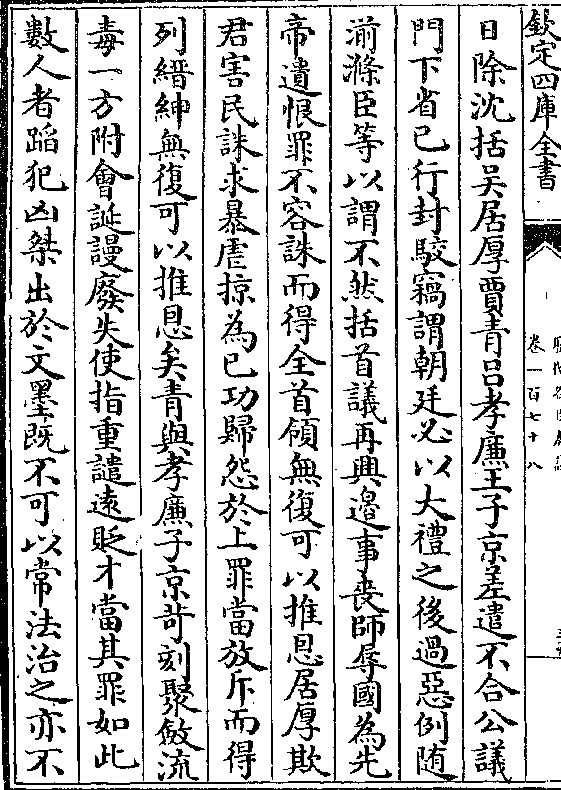 欽定四庫全書
卷一百七十八
日除沈括吴居厚賈青吕孝廉王子京差遣不合公議
門下省已行封駮竊謂朝廷必以大禮之後過惡例隨
湔滌臣等以謂不然括首議再興邉事喪師辱國為先
帝遺恨罪不容誅而得全首領無復可以推恩居厚欺
君害民誅求暴虐掠為已功歸怨於上罪當放斥而得
列縉紳無復可以推恩矣青與孝廉子京苛刻聚斂流
毒一方附會誕謾廢失使指重譴逺貶才當其罪如此
數人者蹈犯凶桀出於文墨既不可以常法治之亦不